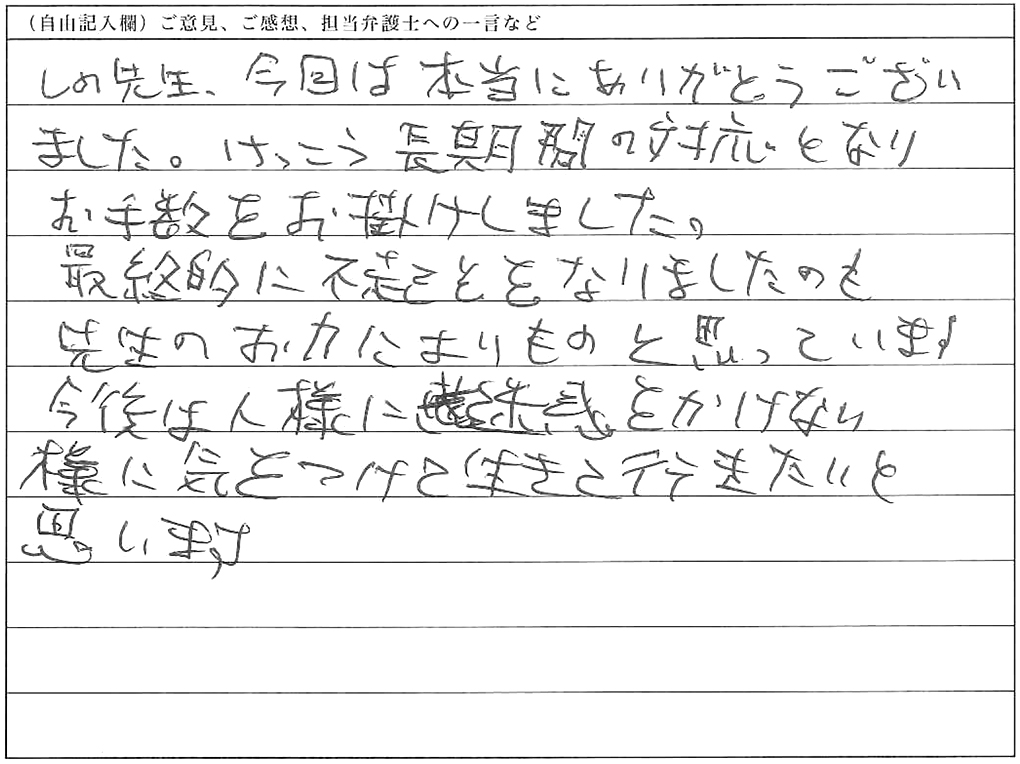 （自由記入欄）ご意見、ご感想、担当弁護士への一言など
しの先生、今回は本当にありがとうござい
ました。けっこう長期間の対応となり
お手数をお掛けしました。
最終的に不起ことをなりましたのも
先生のお力によりものと思っています
今後は人様に迷惑をかけない
様に気をつけて生きて行きたいと
思います